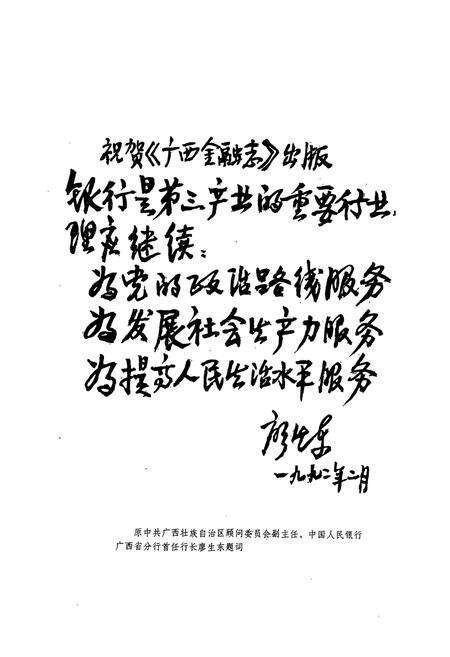 祝贺《广西金融志》出版
银行是第三产业的重要行业，
理应继续：
为党的政治路线服务
为发展社会生产力服务
为提高人民生活水平服务
廖生东
一九九二年二月
原中共广西壮族自治区顾问委员会副主任、中国人民银行
广西省分行首任行长廖生东题词